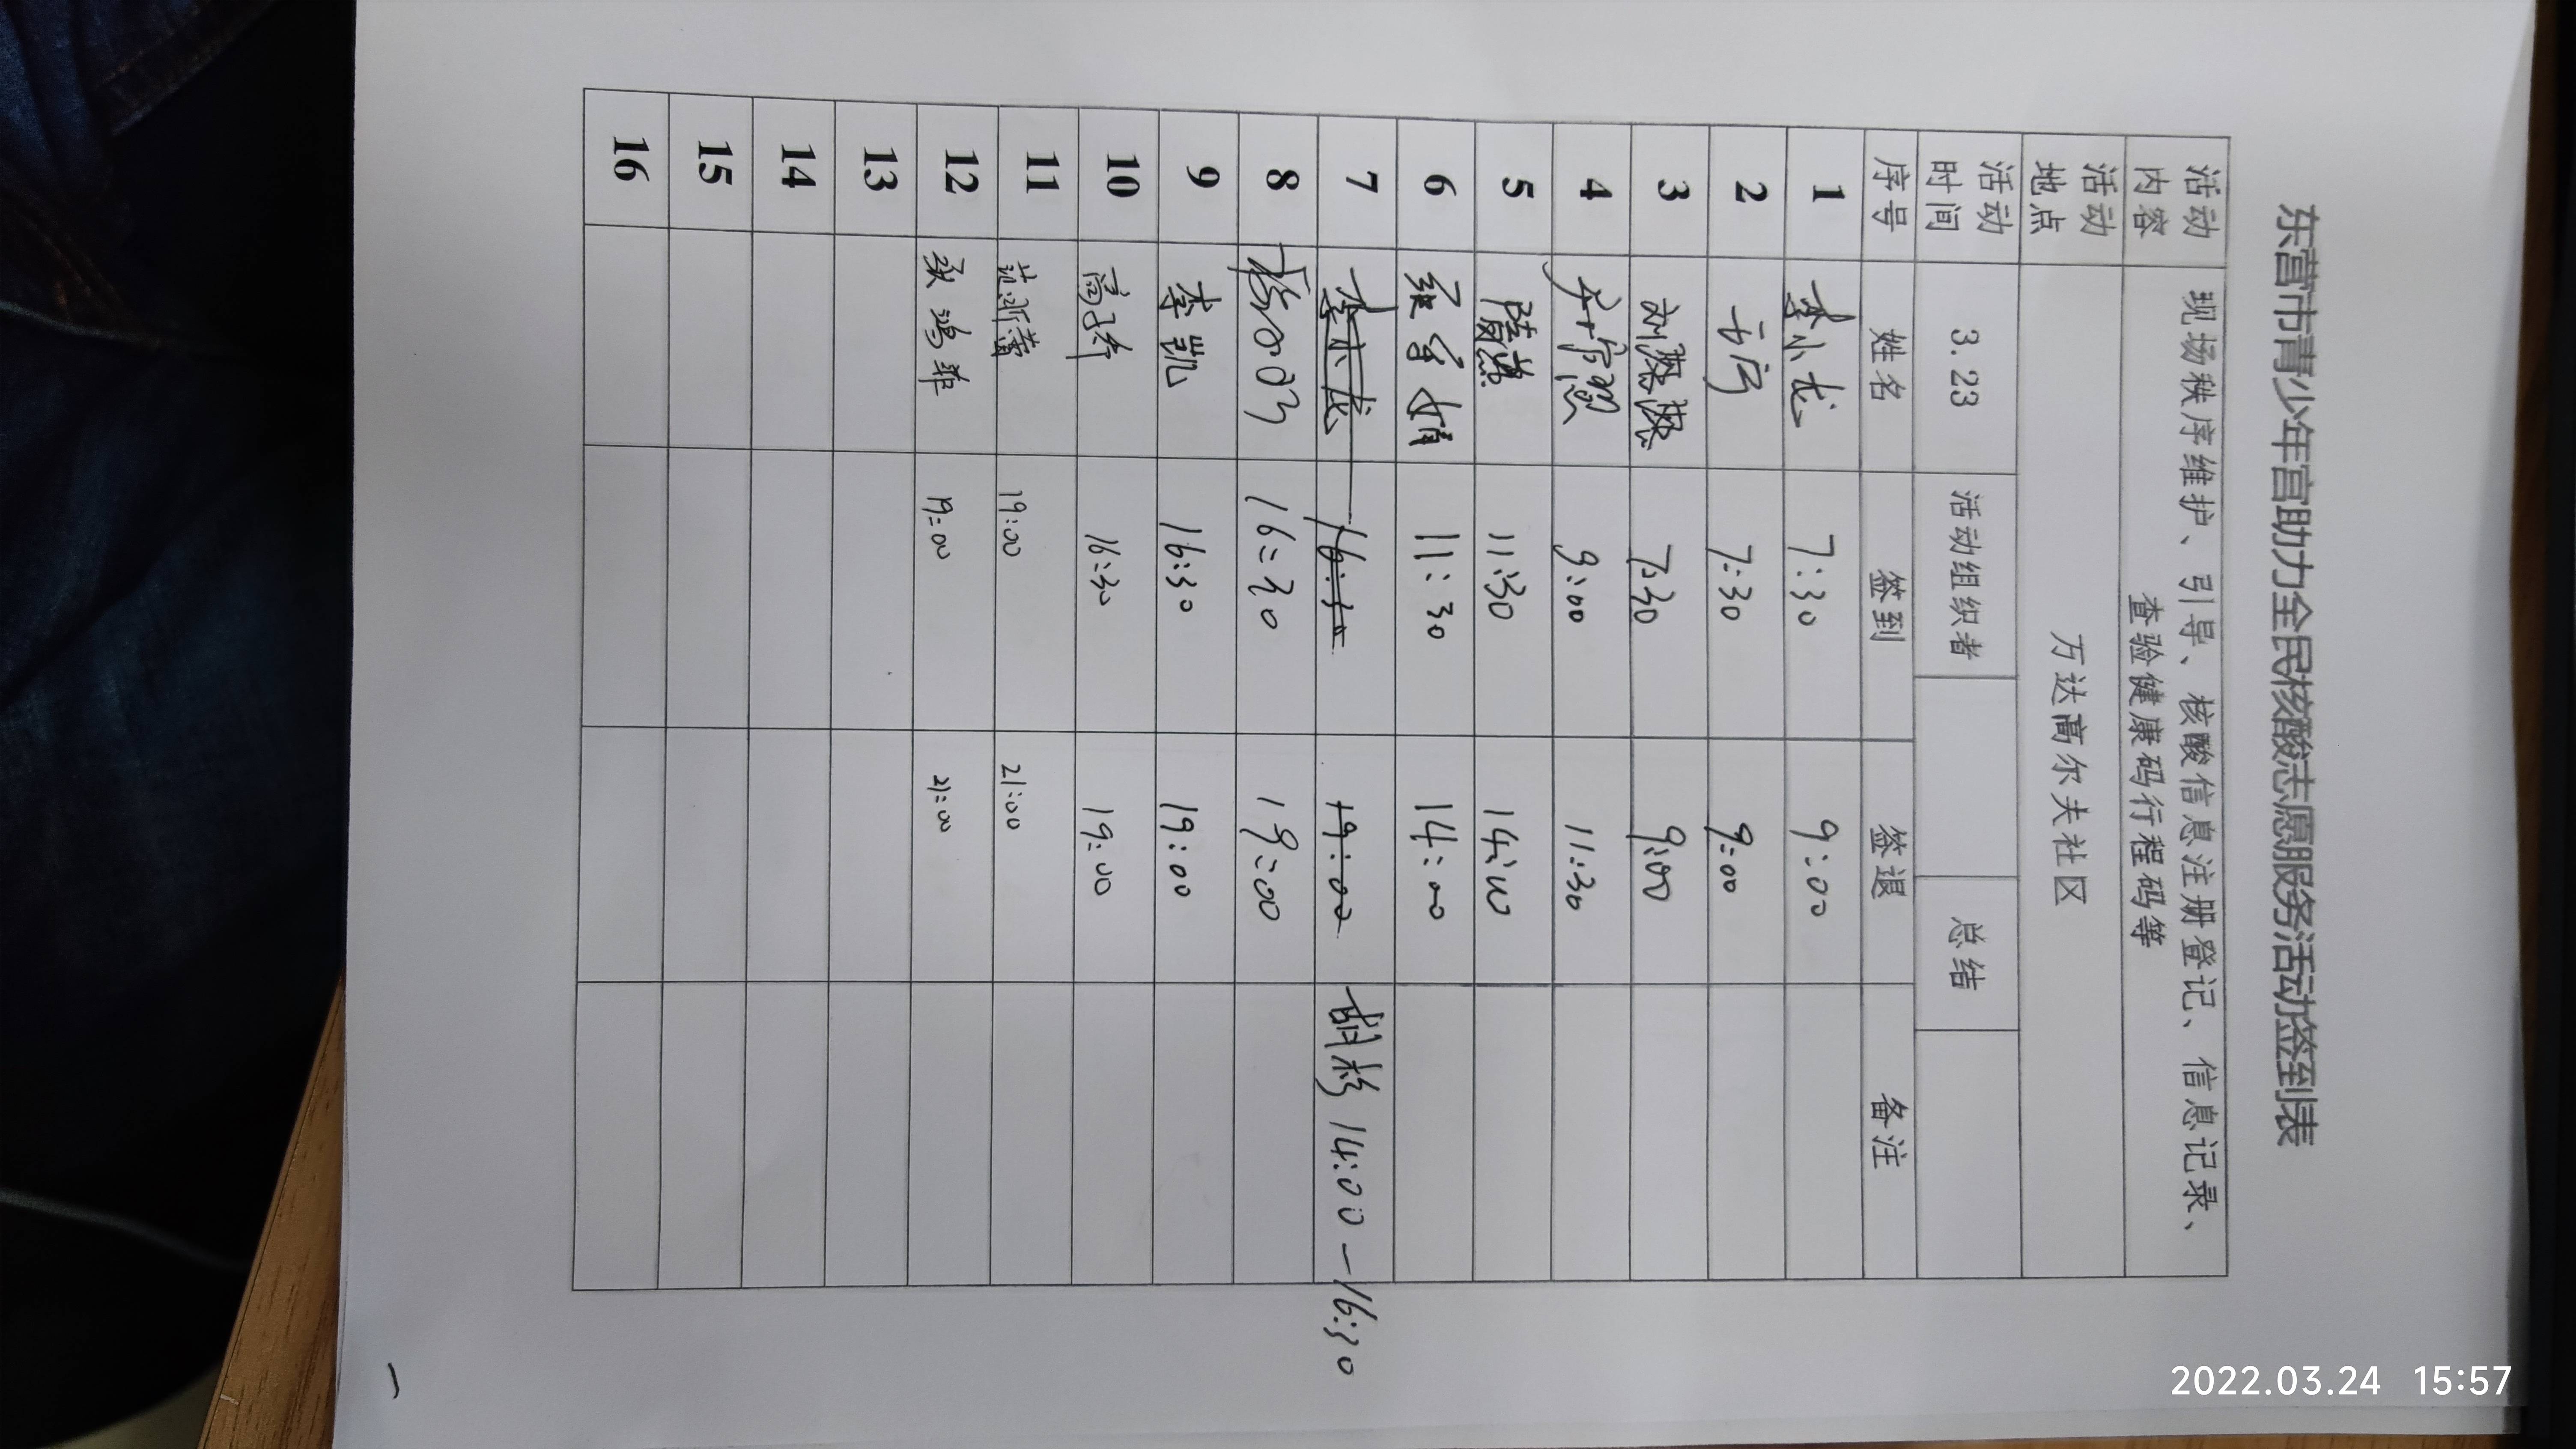 东营市青少年宫助力全民核酸志愿服务活动签到表
活动内容 现场秩序维护、引导、核酸信息注册登记、信息记录、
查验健康码行程码等
活动地点 万达高尔夫社区
活动时间 3.23 活动组织者 总结
序号 姓名 签到 签退 备注
1 李小龙 7:30 9:00
2 7:30 9:00
3 7:30 9:00
4 9:00 11:30
5 11:30 14:00
6 11:30 14:00
7 16:30 19:00 胡杨 14:00-16:30
8 16:30 19:00
9 李凯 16:30 19:00
10 16:30 19:00
11 19:00 21:00
12 19:00 21:00
13
14
15
16
2022.03.24 15:57